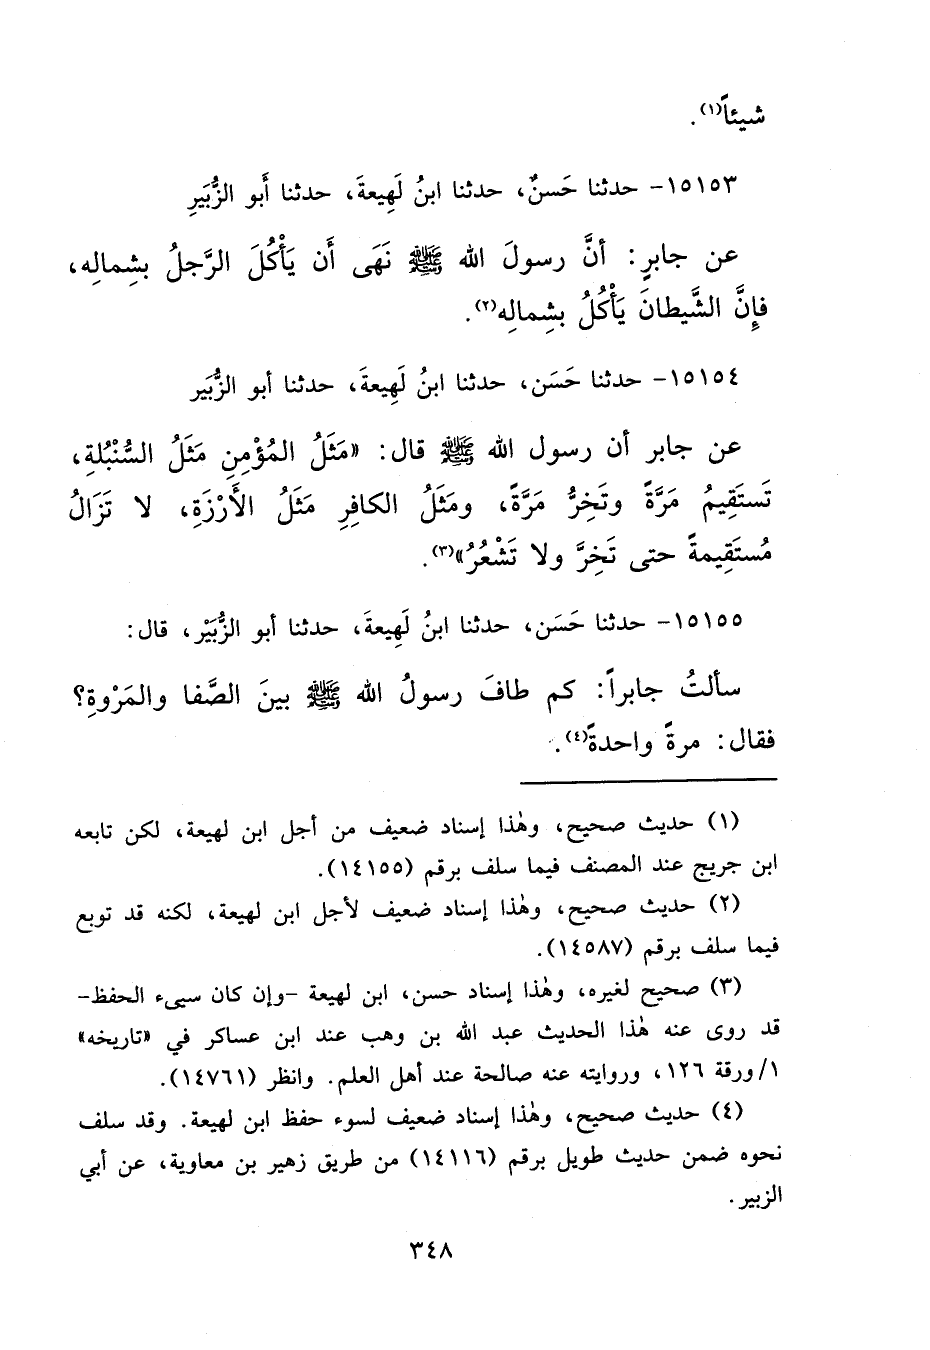 شيئاً(١).
١٥١٥٣- حدثنا حَسنٌ، حدثنا ابنُ لَهِيعةَ، حدثنا أَبو الزُّبَيَرِ
عن جابرٍ: أنَّ رسولَ الله ﷺ نَهَى أَن يَأْكُلَ الرَّجلُ بشِمالِه،
فإِنَّ الشَّيطانَ يَأْكُلُ بشِمالِه(٢).
١٥١٥٤- حدثنا حَسَن، حدثنا ابنُ لَهِيعةَ، حدثنا أبو الزُّبَير
عن جابر أن رسول الله ﷺ قال: «مَثَلُ المُؤْمِنِ مَثَلُ السُّنْبُلةِ،
تَستَقِيمُ مَرَّةً وتَخِرُّ مَرَّةً، ومَثَلُ الكافِرِ مَثَلُ الأَرْزَةِ، لا تَزَالُ
مُستَقِيمةً حتى تَخِرَّ ولا تَشْعُرُ»(٣).
١٥١٥٥- حدثنا حَسَن، حدثنا ابنُ لَهِيعةَ، حدثنا أبو الزُّبَيْر، قال:
سألتُ جابراً: كم طافَ رسولُ الله ﷺ بينَ الصَّفا والمَرْوةِ؟
فقال: مرةً واحدةً(٤).
(١) حديث صحيح، وهٰذا إسناد ضعيف من أجل ابن لهيعة، لكن تابعه
ابن جريج عند المصنف فيما سلف برقم (١٤١٥٥).
(٢) حديث صحيح، وهٰذا إسناد ضعيف لأجل ابن لهيعة، لكنه قد توبع
فيما سلف برقم (١٤٥٨٧).
(٣) صحيح لغيره، وهٰذا إسناد حسن، ابن لهيعة -وإن كان سيىء الحفظ-
قد روى عنه هٰذا الحديث عبد الله بن وهب عند ابن عساكر في «تاريخه»
١/ورقة ١٢٦، وروايته عنه صالحة عند أهل العلم. وانظر (١٤٧٦١).
(٤) حديث صحيح، وهٰذا إسناد ضعيف لسوء حفظ ابن لهيعة. وقد سلف
نحوه ضمن حديث طويل برقم (١٤١١٦) من طريق زهير بن معاوية، عن أبي
الزبير.
٣٤٨